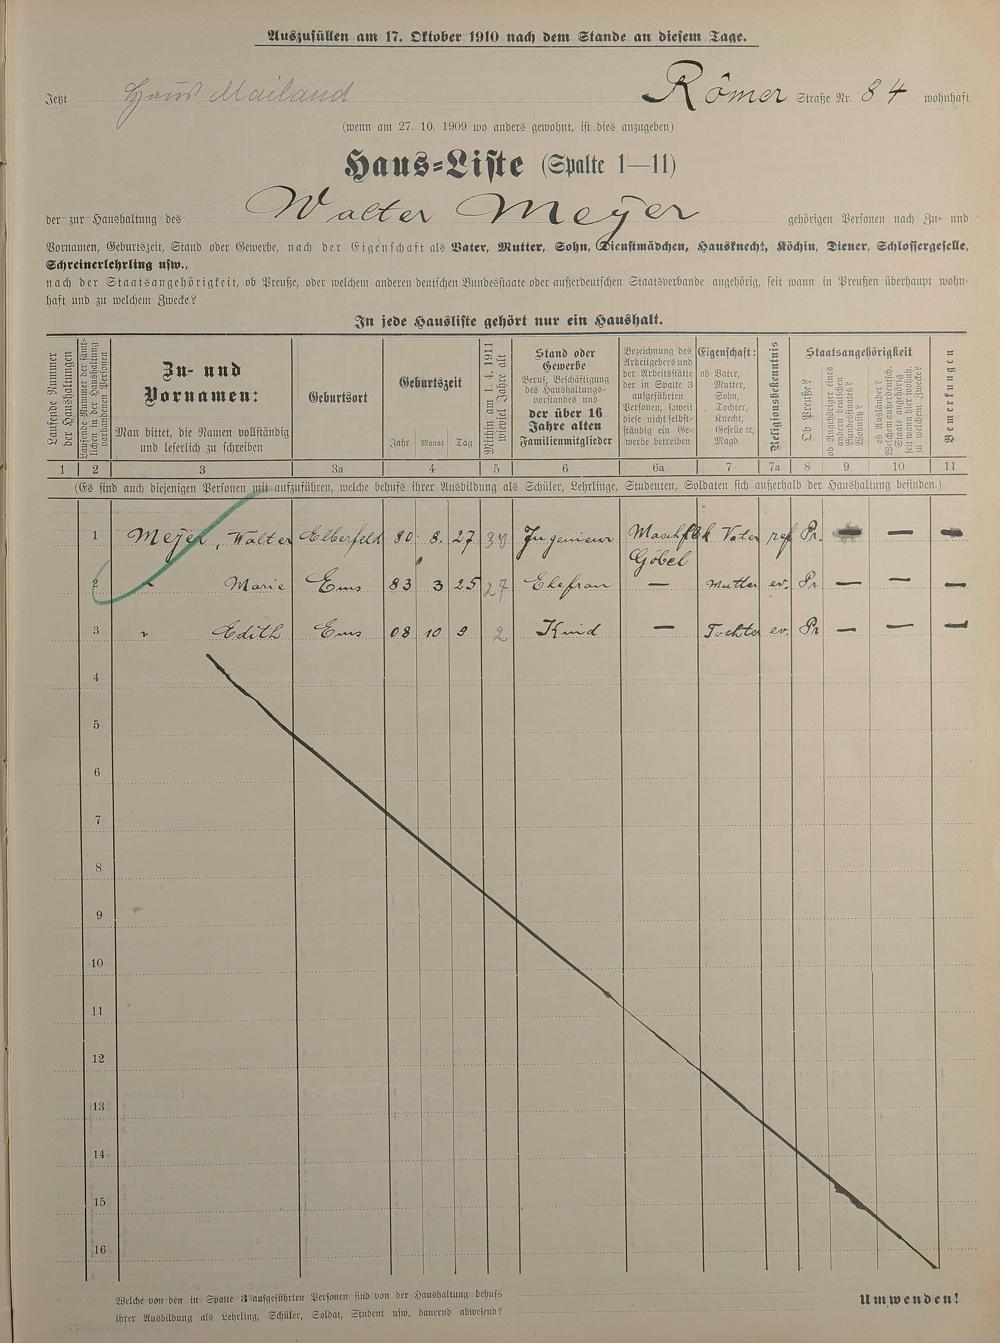 Auszufüllen am 17. Oktober 1910 nach dem Stande an diesem Tage.
Jetzt Haus Mailand Römer Straße Nr. 84 wohnhaft
(wenn am 27. 10. 1909 wo anders gewohnt, ist dies anzugeben)
Haus=Liste (Spalte 1—11)
der zur Haushaltung des Walter Meyer gehörigen Personen nach Zu= und
Vornamen, Geburtszeit, Stand oder Gewerbe, nach der Eigenschaft als Vater, Mutter, Sohn, Dienstmädchen, Hausknecht, Köchin, Diener, Schlossergeselle,
Schreinerlehrling usw.,
nach der Staatsangehörigkeit, ob Preuße, oder welchem anderen deutschen Bundesstaate oder außerdeutschen Staatsverbande angehörig, seit wann in Preußen überhaupt wohn=
haft und zu welchem Zwecke?
In jede Hausliste gehört nur ein Haushalt.
Laufende Nummer
der Haushaltungen
Laufende Nummer der sämt=
lichen in der Haushaltung
vorhandenen Personen
Zu= und
Vornamen:
Man bittet, die Namen vollständig
und leserlich zu schreiben
Geburtsort
Geburtszeit
Jahr Monat Tag
Mithin am 1. 4. 1911
wieviel Jahre alt
Stand oder
Gewerbe
Beruf, Beschäftigung
des Haushaltungs=
vorstandes und
der über 16
Jahre alten
Familienmitglieder
Bezeichnung des
Arbeitgebers und
der Arbeitsstätte
der in Spalte 3
aufgeführten
Personen, soweit
diese nicht selbst=
ständig ein Ge=
werbe betreiben
Eigenschaft:
ob Vater,
Mutter,
Sohn,
Tochter,
Knecht,
Geselle ec,
Magd.
Religionsbekenntnis
Staatsangehörigkeit
Ob Preuße?
ob Angehöriger eines
andern deutschen
Bundesstaates?
Wohnsitz?
ob Ausländer?
Welchem außerdeutsch.
Staate angehörig
seit wann hier wohnh.
zu welchem Zwecke?
Bemerkungen
1 2 3 3a 4 5 6 6a 7 7a 8 9 10 11
(Es sind auch diejenigen Personen mit aufzuführen, welche behufs ihrer Ausbildung als Schüler, Lehrlinge, Studenten, Soldaten sich außerhalb der Haushaltung befinden.)
1 Meyer, Walter Elberfeld 80 8. 27 30 Ingenieur Maschfbk Vater ref Pr. — — —
Göbel
2 " Marie Ems 83 3 25 27 Ehefrau — Mutter ev. Pr — — —
3 " Edith Ems 08 10 9 2 Kind — Tochter ev. Pr — — —
4
5
6
7
8
9
10
11
12
13
14
15
16
Welche von den in Spalte 3 aufgeführten Personen sind von der Haushaltung behufs
ihrer Ausbildung als Lehrling, Schüler, Soldat, Student usw. dauernd abwesend?
Umwenden!